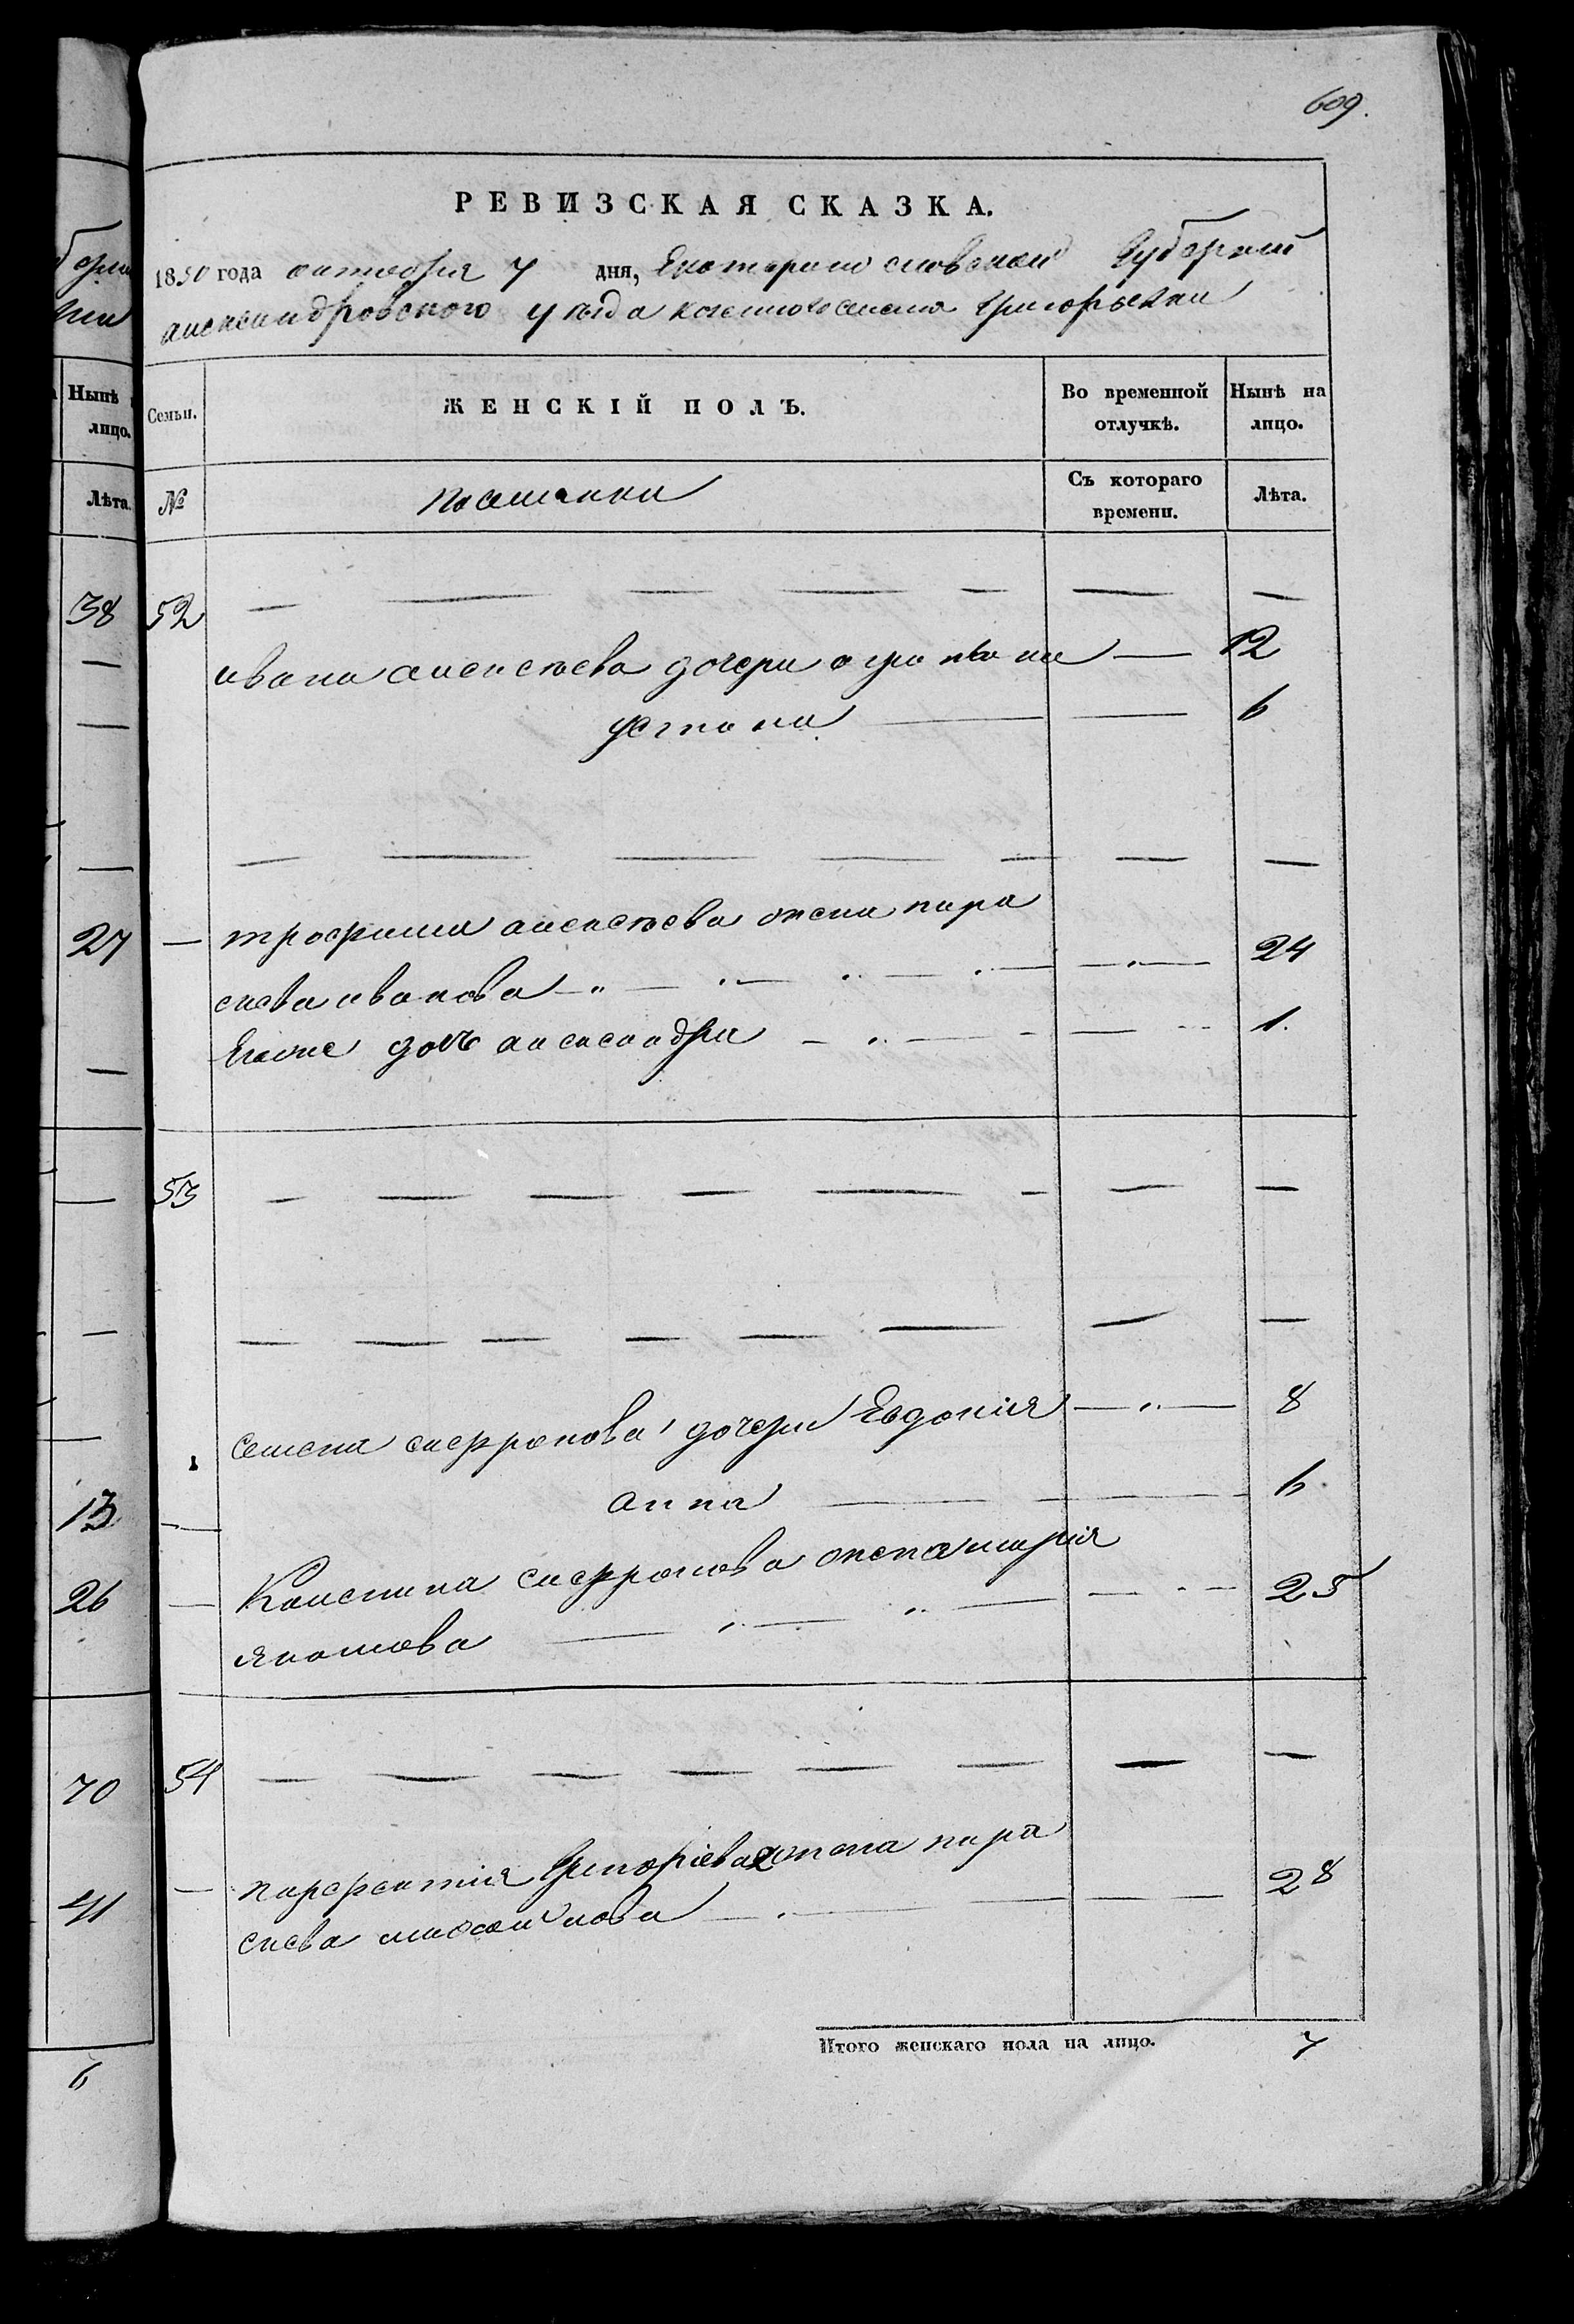 609.
РЕВИЗСКАЯ СКАЗКА.
1850 года октября 7 дня, Екатеринославской Губернии
александровского уезда казенного селения Григорьевки
Семьи.
ЖЕНСКІЙ ПОЛЪ.
Во временной отлучкѣ.
Нынѣ на лицо.
№
поселянки
Съ котораго времени.
Лѣта.
Нынѣ
лицо.
Лѣта.
38 52
ивана алексѣева дочери агрипина 12
устина 6
27 трофима алексѣева жена пара
скева иванова 24
Егоже дочь александра 1.
53
семена сафронова дочери Евдокия 8
13 анна 6
26 сафронова жена мария
якимова 25
70 54
41 парфентия Григориева жена пара
скева 28
Итого женскаго пола на лицо. 7
6